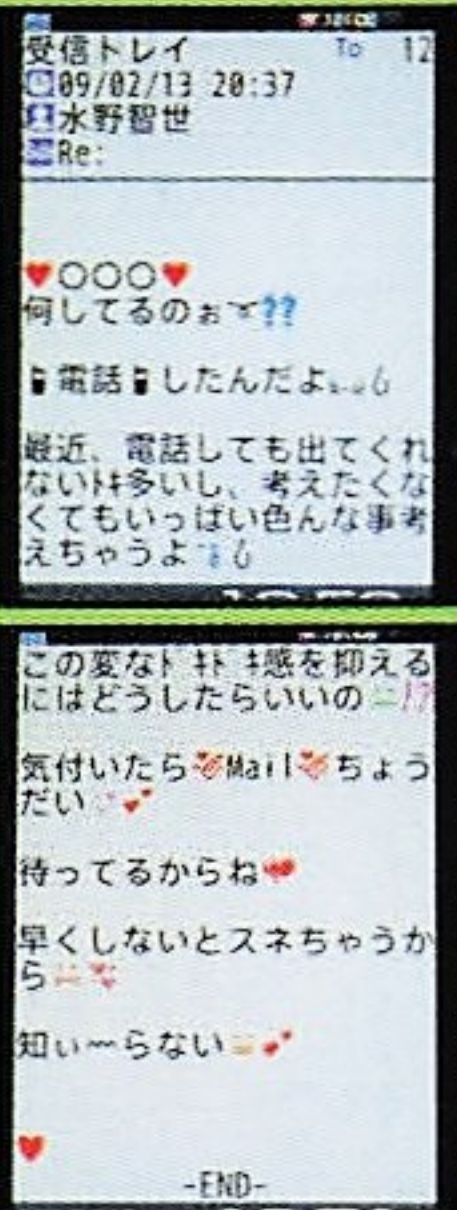 受信トレイ To 12
09/02/13 20:37
水野智世
Re:
♥○○○♥
何してるのぉ??
電話したんだよ
最近、電話しても出てくれ
ないﾄｷ多いし、考えたくな
くてもいっぱい色んな事考
えちゃうよ
この変なﾄﾞｷﾄﾞｷ感を抑える
にはどうしたらいいの!?
気付いたら💘Mail💘ちょう
だい💕
待ってるからね
早くしないとスネちゃうか
ら
知ぃ〜らない💕
♥
-END-